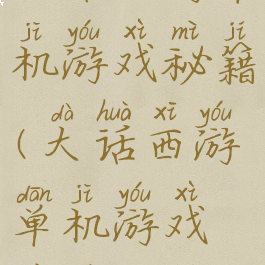 jī yóu xì mì jí
机游戏秘籍
dà huà xī yóu
(大话西游
dān jī yóu xì
单机游戏